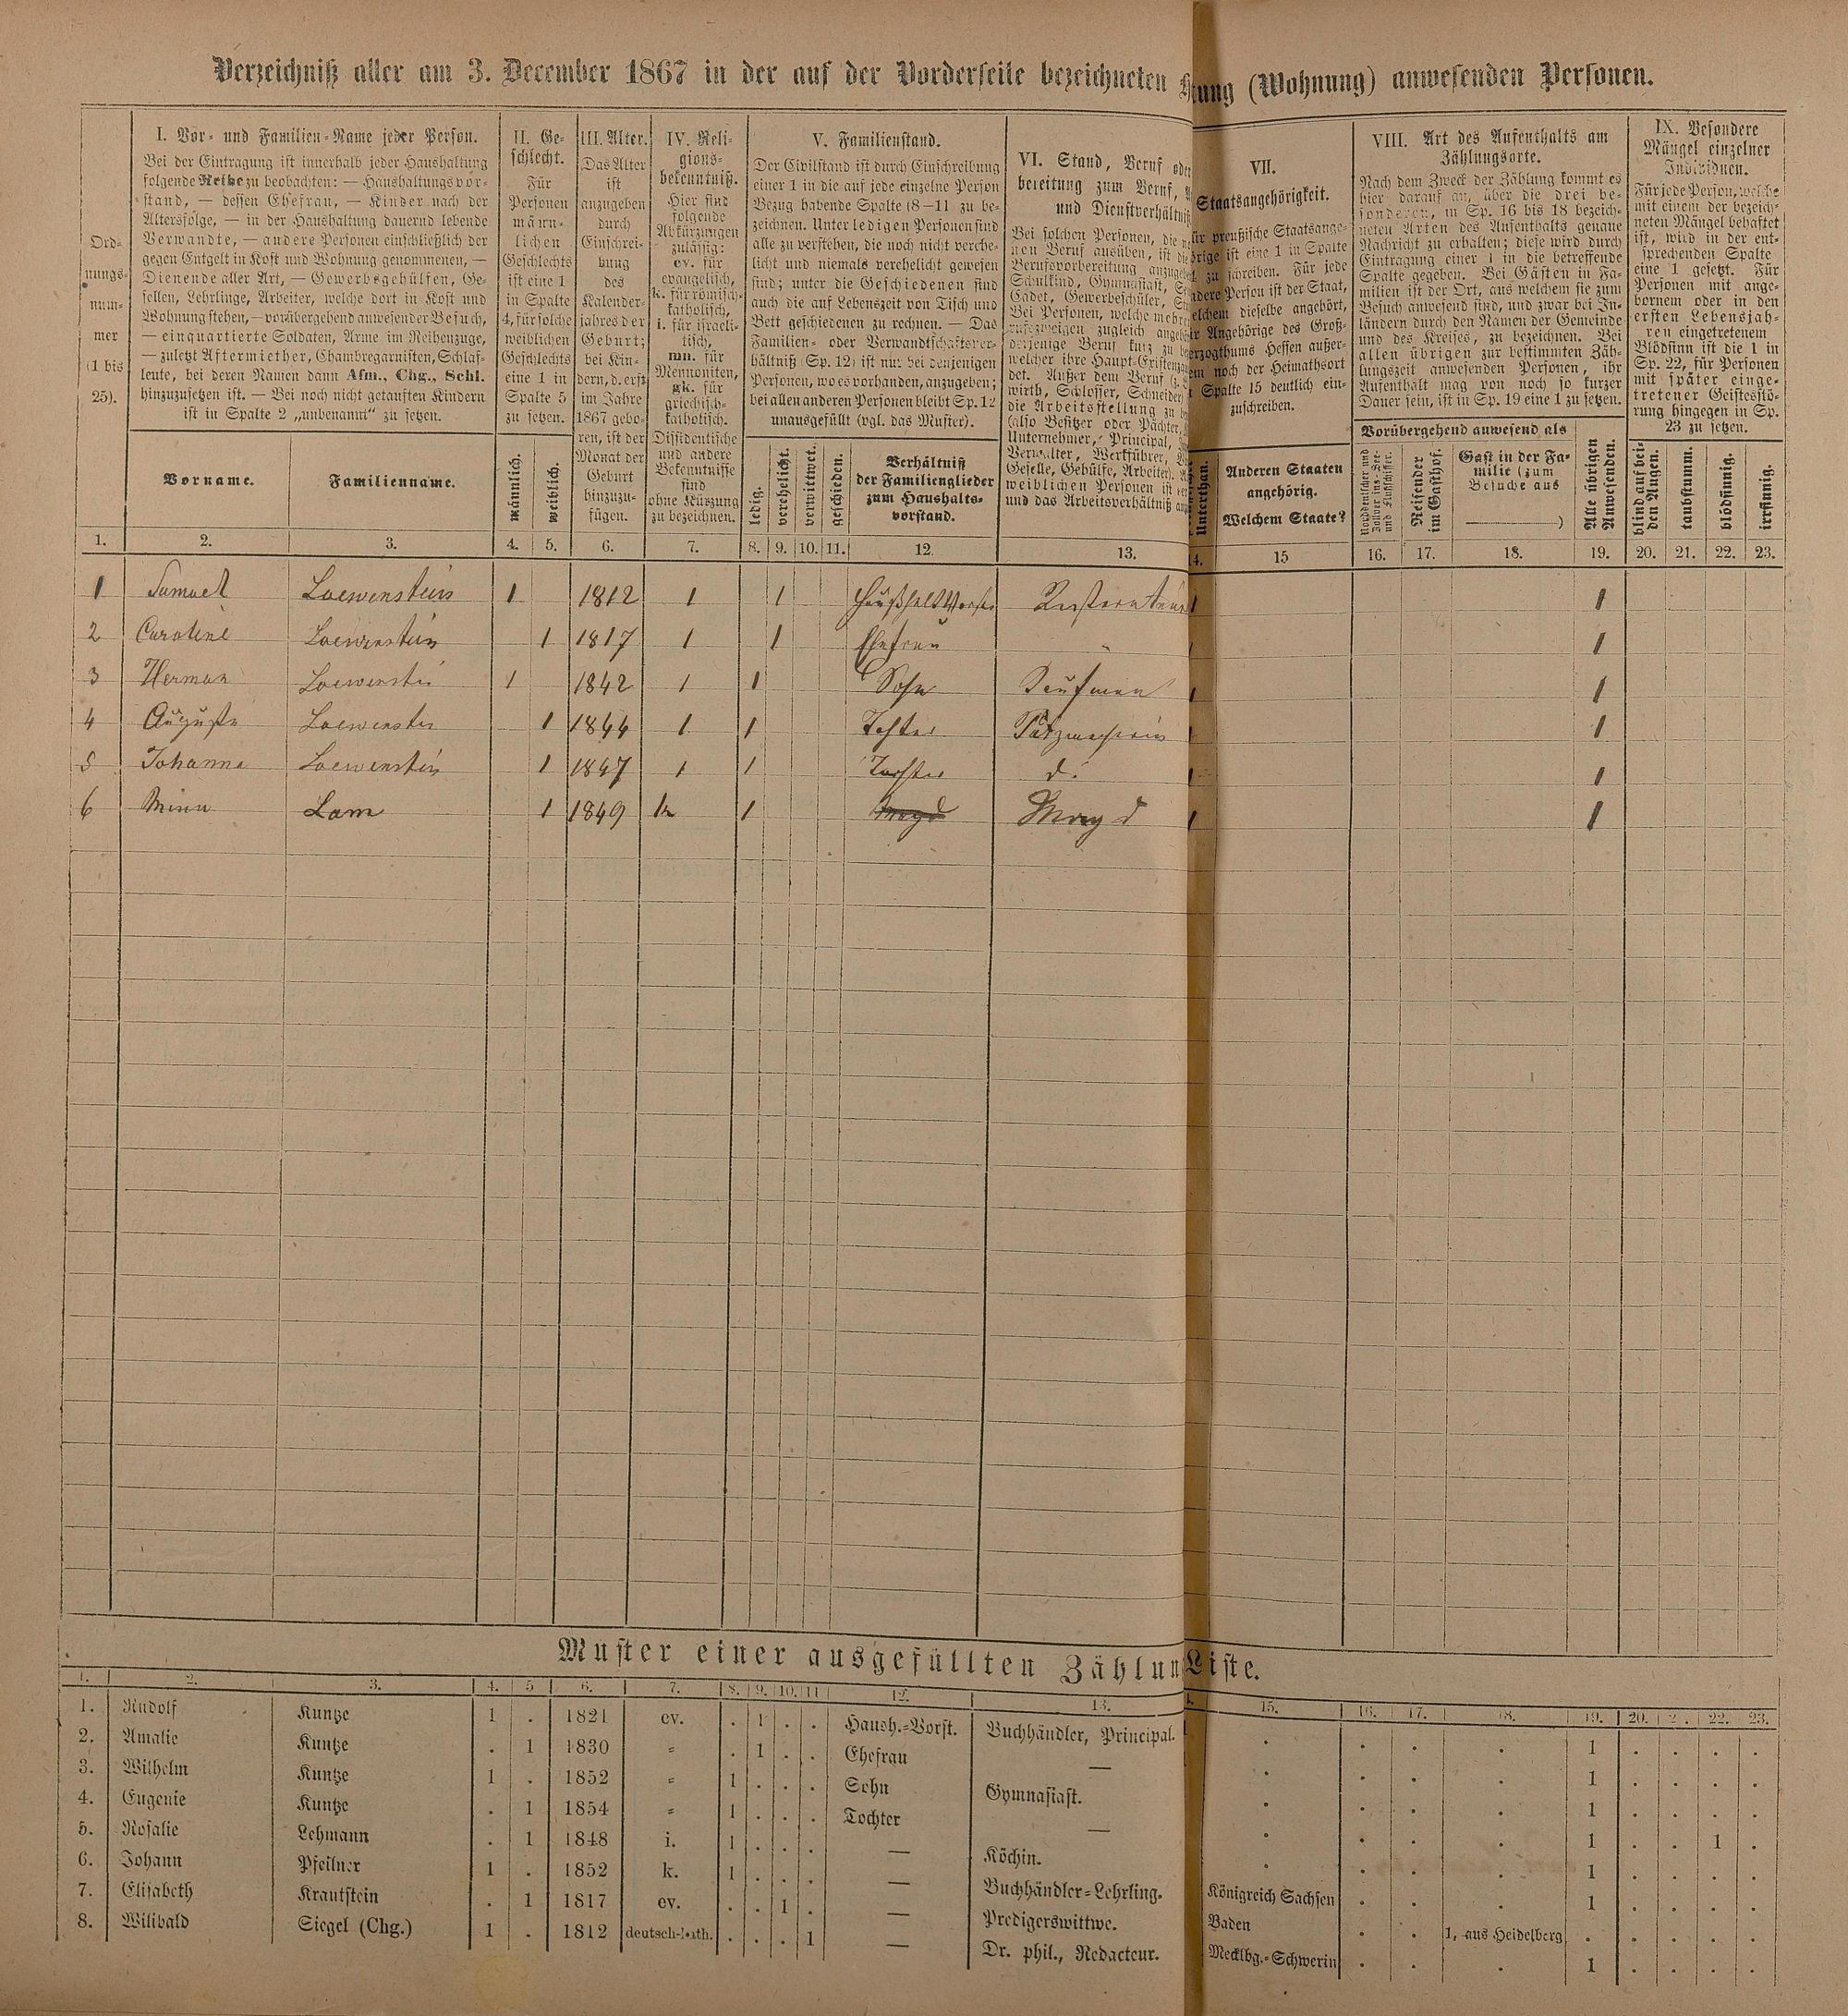 Verzeichniß aller am 3. December 1867 in der auf der Vorderseite bezeichneten tung (Wohnung) anwesenden Personen.
Ord-
nungs-
num-
mer
(1 bis
25).
I. Vor- und Familien-Name jeder Person.
Bei der Eintragung ist innerhalb jeder Haushaltung
folgende Reihe zu beobachten: — Haushaltungsvor-
stand, — dessen Ehefrau, — Kinder nach der
Altersfolge, — in der Haushaltung dauernd lebende
Verwandte, — andere Personen einschließlich der
gegen Entgelt in Kost und Wohnung genommenen, —
Dienende aller Art, — Gewerbsgehülfen, Ge-
sellen, Lehrlinge, Arbeiter, welche dort in Kost und
Wohnung stehen, — vorübergehend anwesender Besuch,
— einquartierte Soldaten, Arme im Reihenzuge,
— zuletzt Aftermiether, Chambregarnisten, Schlaf-
leute, bei deren Namen dann Afm., Chg., Schl.
hinzuzusetzen ist. — Bei noch nicht getauften Kindern
ist in Spalte 2 „unbenannt“ zu setzen.
Vorname.
Familienname.
II. Ge-
schlecht.
Für
Personen
männ-
lichen
Geschlechts
ist eine 1
in Spalte
4, für solche
weiblichen
Geschlechts
eine 1 in
Spalte 5
zu setzen.
männlich.
weiblich.
III. Alter.
Das Alter
ist
anzugeben
durch
Einschrei-
bung
des
Kalender-
jahres der
Geburt;
bei Kin-
dern, d. erst
im Jahre
1867 gebo-
ren, ist der
Monat der
Geburt
hinzuzu-
fügen.
IV. Reli-
gions-
bekenntniß.
Hier sind
folgende
Abkürzungen
zulässig:
ev. für
evangelisch,
k. für römisch-
katholisch,
i. für israeli-
tisch,
mn. für
Mennoniten,
gk. für
griechisch-
katholisch.
Dissidentische
und andere
Bekenntnisse
sind
ohne Kürzung
zu bezeichnen.
V. Familienstand.
Der Civilstand ist durch Einschreibung
einer 1 in die auf jede einzelne Person
Bezug habende Spalte (8—11 zu be-
zeichnen. Unter ledigen Personen sind
alle zu verstehen, die noch nicht verehe-
licht und niemals verehelicht gewesen
sind; unter die Geschiedenen sind
auch die auf Lebenszeit von Tisch und
Bett geschiedenen zu rechnen. — Das
Familien- oder Verwandtschaftsver-
hältniß (Sp. 12) ist nur bei denjenigen
Personen, wo es vorhanden, anzugeben;
bei allen anderen Personen bleibt Sp. 12
unausgefüllt (vgl. das Muster).
ledig.
verehelicht.
verwittwet.
geschieden.
Verhältniß
der Familienglieder
zum Haushalts-
vorstand.
VI. Stand, Beruf oder
bereitung zum Beruf,
und Dienstverhältniß
Bei solchen Personen, die
nen Beruf ausüben, ist die
Berufsvorbereitung
Schulkind, Gymnasiast,
Cadet, Gewerbeschüler,
Bei Personen, welche mehre
zugleich
derjenige Beruf kurz zu
welcher ihre
det. Außer dem Beruf
wirth, Schlosser, Schneider)
die Arbeitsstellung zu
(also Besitzer oder Pächter,
Unternehmer, Principal,
Verwalter, Werkführer,
Geselle, Gehülfe, Arbeiter).
weiblichen Personen ist
und das Arbeitsverhältniß
VII.
Staatsangehörigkeit.
für preußische Staatsange-
hörige ist eine 1 in Spalte
zu schreiben. Für jede
andere Person ist der Staat,
welchem dieselbe angehört,
für Angehörige des Groß-
herzogthums Hessen außer-
dem noch der Heimathsort
Spalte 15 deutlich ein-
zuschreiben.
Unterthan.
Anderen Staaten
angehörig.
Welchem Staate?
VIII. Art des Aufenthalts am
Zählungsorte.
Nach dem Zweck der Zählung kommt es
hier darauf an, über die drei be-
sonderen, in Sp. 16 bis 18 bezeich-
neten Arten des Aufenthalts genaue
Nachricht zu erhalten; diese wird durch
Eintragung einer 1 in die betreffende
Spalte gegeben. Bei Gästen in Fa-
milien ist der Ort, aus welchem sie zum
Besuch anwesend sind, und zwar bei In-
ländern durch den Namen der Gemeinde
und des Kreises, zu bezeichnen. Bei
allen übrigen zur bestimmten Zäh-
lungszeit anwesenden Personen, ihr
Aufenthalt mag von noch so kurzer
Dauer sein, ist in Sp. 19 eine 1 zu setzen.
Vorübergehend anwesend als
Norddeutscher und
Zollvereins-See-
und Flußschiffer.
Reisender
im Gasthof.
Gast in der Fa-
milie (zum
Besuche aus
)
Alle übrigen
Anwesenden.
IX. Besondere
Mängel einzelner
Individuen.
Für jede Person, welche
mit einem der bezeich-
neten Mängel behaftet
ist, wird in der ent-
sprechenden Spalte
eine 1 gesetzt. Für
Personen mit ange-
bornem oder in den
ersten Lebensjah-
ren eingetretenem
Blödsinn ist die 1 in
Sp. 22, für Personen
mit später einge-
tretener Geistesstö-
rung hingegen in Sp.
23 zu setzen.
blind auf bei-
den Augen.
taubstumm.
blödsinnig.
irrsinnig.
1. 2. 3. 4. 5. 6. 7. 8. 9. 10. 11. 12. 13. 14. 15 16. 17. 18. 19. 20. 21. 22. 23.
1 Samuel Loewenstein 1 1812 1 1 1 1
2 Caroline Loewenstein 1 1817 1 1 Ehefrau " 1 1
3 Herman Loewenstei 1 1842 1 1 Sohn Kaufman 1 1
4 Auguste Loewenstei 1 1844 1 1 Tohter Putzmacherin 1 1
5 Johanna Loewenstein 1 1847 1 1 Tochter d. 1 1
6 Minn Lam 1 1849 k 1 Magd Magd 1 1
Muster einer ausgefüllten Zählun Liste.
1. 2. 3. 4. 5 6. 7. 8. 9. 10. 11 12. 13. 15. 16. 17. 18. 19. 20. 2 . 22. 23.
1. Rudolf Kuntze 1 . 1821 ev. . 1 . . Haush.-Vorst. Buchhändler, Principal. 1 . . . . 1 . . . .
2. Amalie Kuntze . 1 1830 = . 1 . . Ehefrau — . . . . 1 . . . .
3. Wilhelm Kuntze 1 . 1852 = 1 . . . Sohn Gymnasiast. . . . . 1 . . . .
4. Eugenie Kuntze . 1 1854 = 1 . . . Tochter — . . . . 1 . . 1 .
5. Rosalie Lehmann . 1 1848 i. 1 . . . — Köchin. . . . . 1 . . . .
6. Johann Pfeilner 1 . 1852 k. 1 . . . — Buchhändler-Lehrling. Königreich Sachsen . . . 1 . . . .
7. Elisabeth Krautstein . 1 1817 ev. . . 1 . — Predigerswittwe. Baden . . 1, aus Heidelberg . . . . .
8. Wilibald Siegel (Chg.) 1 . 1812 deutsch-kath. . . . 1 — Dr. phil., Redacteur. Mecklbg.-Schwerin . . . 1 . . . .